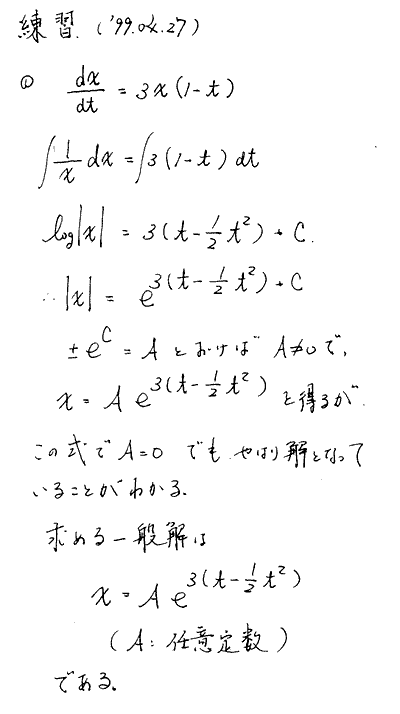 練習. ('99.04.27)
① dx/dt = 3x(1-t)
∫1/x dx = ∫3(1-t) dt
log|x| = 3(t-1/2 t²) + C.
∴ |x| = e^{3(t-1/2 t²) + C}
±e^C = A とおけば A≠0で,
x = A e^{3(t-1/2 t²)} と得るが
この式で A=0 でも やはり解となって
いることがわかる.
求める一般解は
x = A e^{3(t-1/2 t²)}
(A: 任意定数)
である.